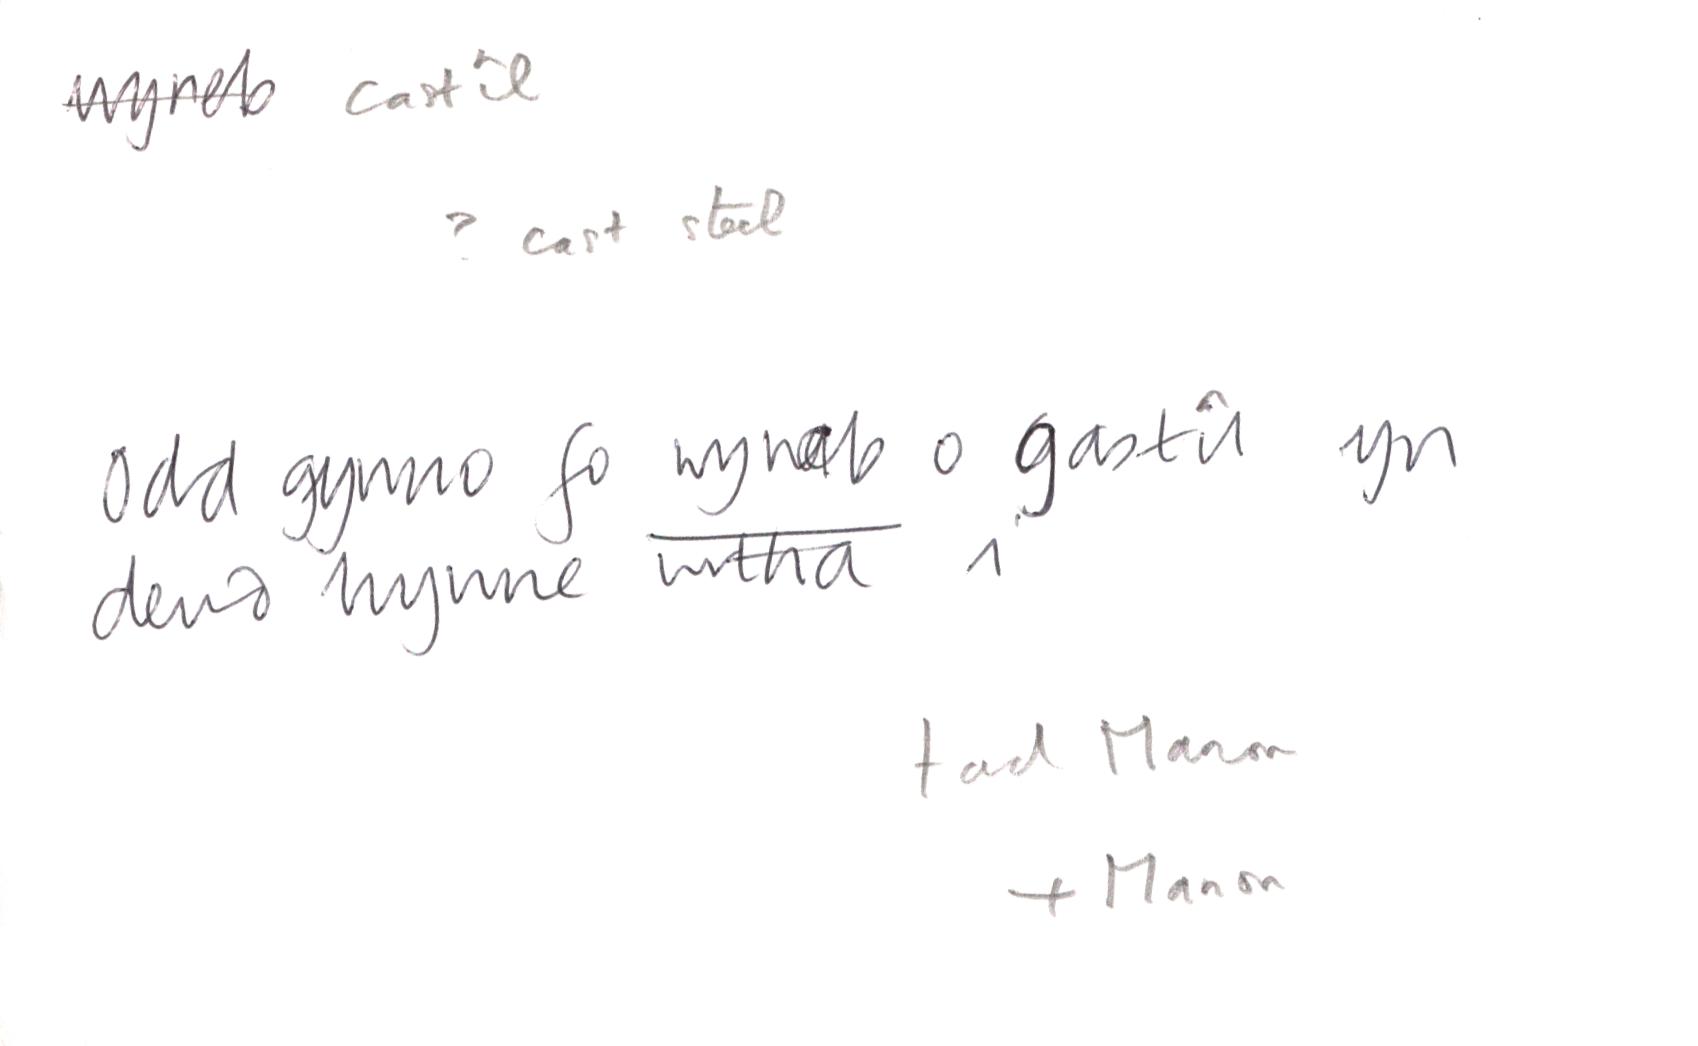 wyneb castîl
? cast steel
Odd gynno fo wynab o gastîl yn
deud hynne wrtha i
tad Manon
+ Manon